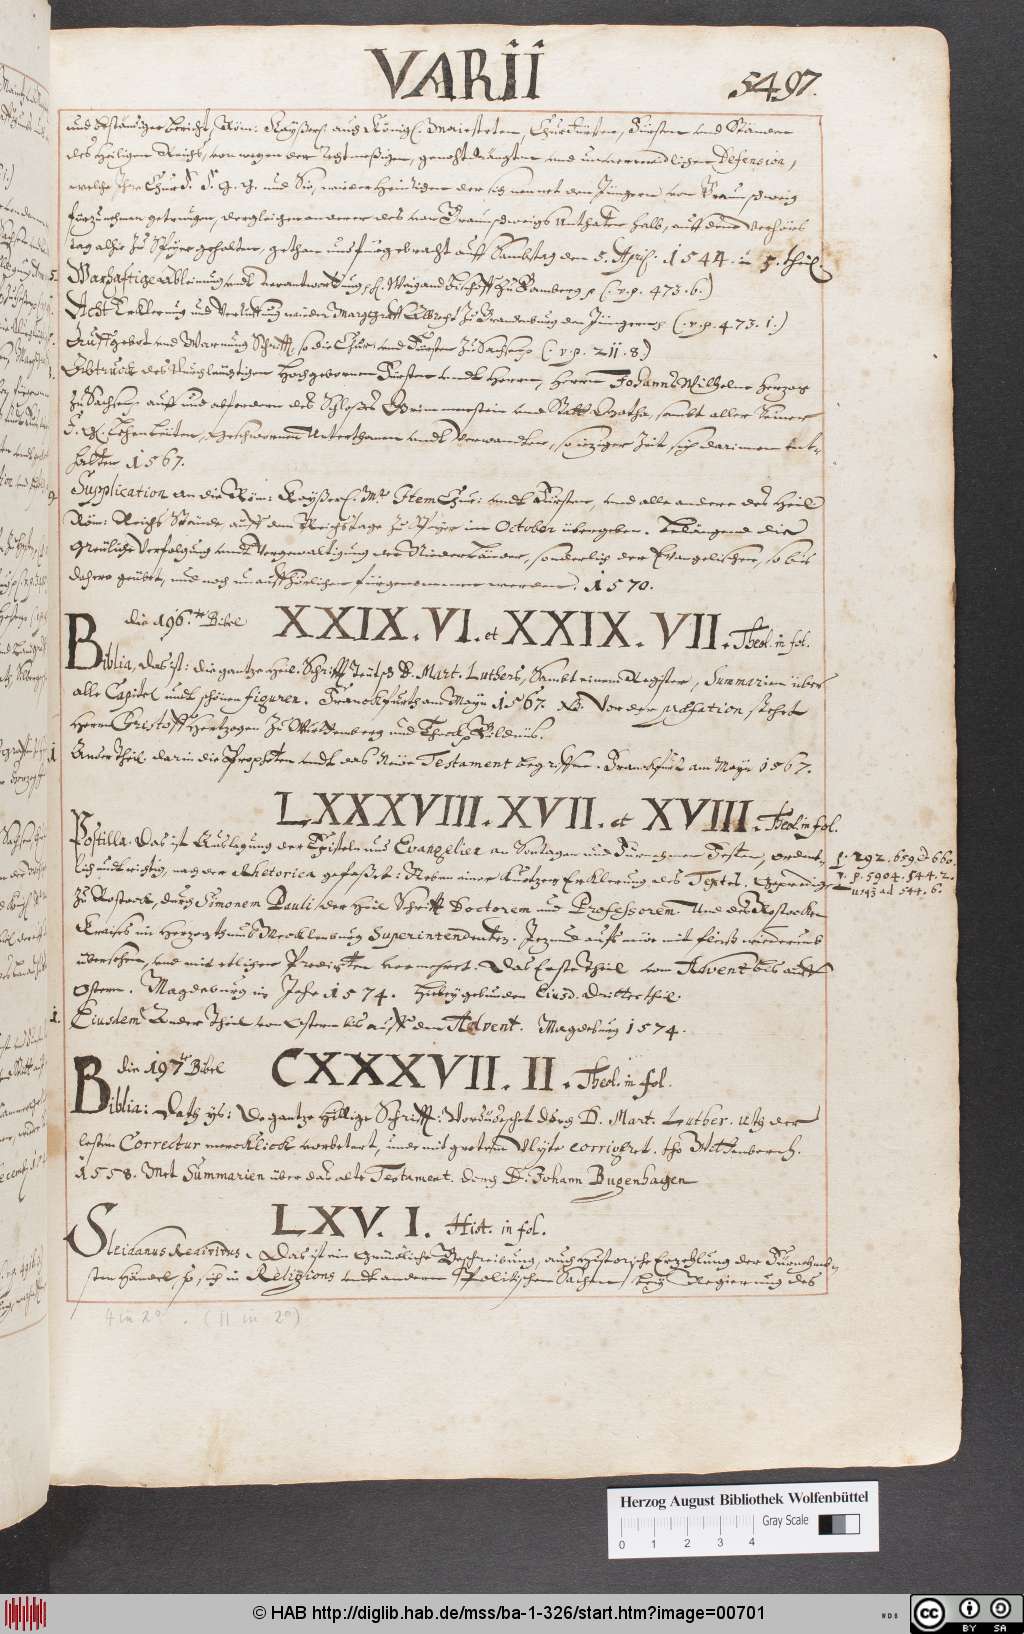 VARII
5497.
und bestendiger bericht, Röm: Kayßerl. auch Königl. Maiesteten, Churfürsten, Fürsten und Ständen
des Heiligen Reichs, von wegen der rechtmeßigen, genohtdrängten und unvermeidlichen Defension,
welche Ihre Churf. F. G. G. und Sie, wieder Heinrichen der sich nennet den Jüngern von Braunschweig
fürzunehmen getrungen, dergleichen anderer des von Braunschweigs unthaten halb, auff deme verhörs
tag alhie zu Speyer gehalten, gethan und fürgebracht auff Sambstag den 5. April. 1544. in 3. theil.
5. Warhaftige Ableinung undt verantwortung H. Weigand Bischoff zu Bamberg p (.v.p. 473.6.)
Acht Erklerung und Verruffung wieder Marggraff Albrecht zu Brandenburg den Jüngern p (.v.p. 473.1.)
Außgebot und Warnung Schrifft, so die Chur: und Fürsten zu Sachsen p (.v.p. 211.8.)
Abtruck des Durchläuchtigen Hochgebornen Fürsten undt Herrn, Herrn Johanns Wilhelm Herzog
zu Sachsen auff und abfordern des Schlosses Grimmenstein und Statt Gotha, sambt aller Seiner
F. G. Lehen Leüten, geschwornen Unterthanen undt verwandten, so iziger Zeit sich darinnen ent-
halten 1567.
9. Supplication an die Röm: Kayßerl. Mt. Item Chur: undt Fürsten, und alle andere des Heil.
Röm: Reichs Stände auff dem Reichstage zu Speyer im October übergeben. Belangend die
Greüliche Verfolgung undt Vergewaltigung der Niderländer, sonderlich der Evangelischen, so bis
dahero geübet, und noch unauffhörlichen fürgenommen werden. 1570.
die 196.te Bibel XXIX. VI. et XXIX. VII. Theol. in fol.
Biblia, Das ist: die gantze Heil. Schrifft Teütsch D. Mart. Luthers, Sambt einem Register, Summarien über
alle Capitel undt schönen figuren. Franckfurth am Mayn 1567. NB. Vor der præfation stehet
Herrn Christoff Hertzogen zu Würtenberg und Theck p Bildnüs.
1. Ander Theil. darin die Propheten undt das Neüe Testament begriffen. Franckfurt am Mayn 1567.
LXXXVIII. XVII. et XVIII. Theol. in fol.
Postilla. Das ist Auslegung der Episteln und Evangelien an Sontagen und Fürnehmen Festen, ordent-
lich und richtig, nach der Rhetorica gefasset: Neben einer Kurtzen Erklerung des Textes. Geprediget
zu Rostock, durch Simonem Pauli, der Heil. Schrifft Doctorem und Professorem. und des Rostocken
Kreises im Herzogthumb Mecklenburg Superintendenten. Jezund aufs neüe mit fleiß wiederumb
übersehen, und mit etlichen Predigten vermehret. Das Erste Theil vom Advent bis auff
Ostern. Magdeburg im Jahr 1574. Hierbey gebunden Eiusd. dritter theil.
p. 292. 659 et 660.
v. p. 5904. 544. 2.
usq3 ad 544. 6.
1. Eiusdem Ander Theil von Ostern bis auff den Advent. Magdeburg 1574.
die 197te Bibel CXXXVII. II. Theol. in fol.
Biblia: Dath ys: De gantze Hillige Schrifft: Vordüdeschet dörch D. Mart. Luther. Uth der
lesten Correctur mercklick vorbetert, unde mit grotem Vlyte corrigeret. tho Wittemberch.
1558. Met Summarien über das alte Testament. dorch D. Johann Bugenhagen
LXV. I. Hist. in fol.
Sleidanus Redivivus. Das ist ein Gründliche Beschreibung, auch Historische Erzehlung der Fürnehmb-
sten Händel, so sich in Religions undt andern Politischen Sachen, bey Regierung des
4 in 2° . (11 in 2°)
Herzog August Bibliothek Wolfenbüttel
Gray Scale
0 1 2 3 4
© HAB http://diglib.hab.de/mss/ba-1-326/start.htm?image=00701
cc BY SA